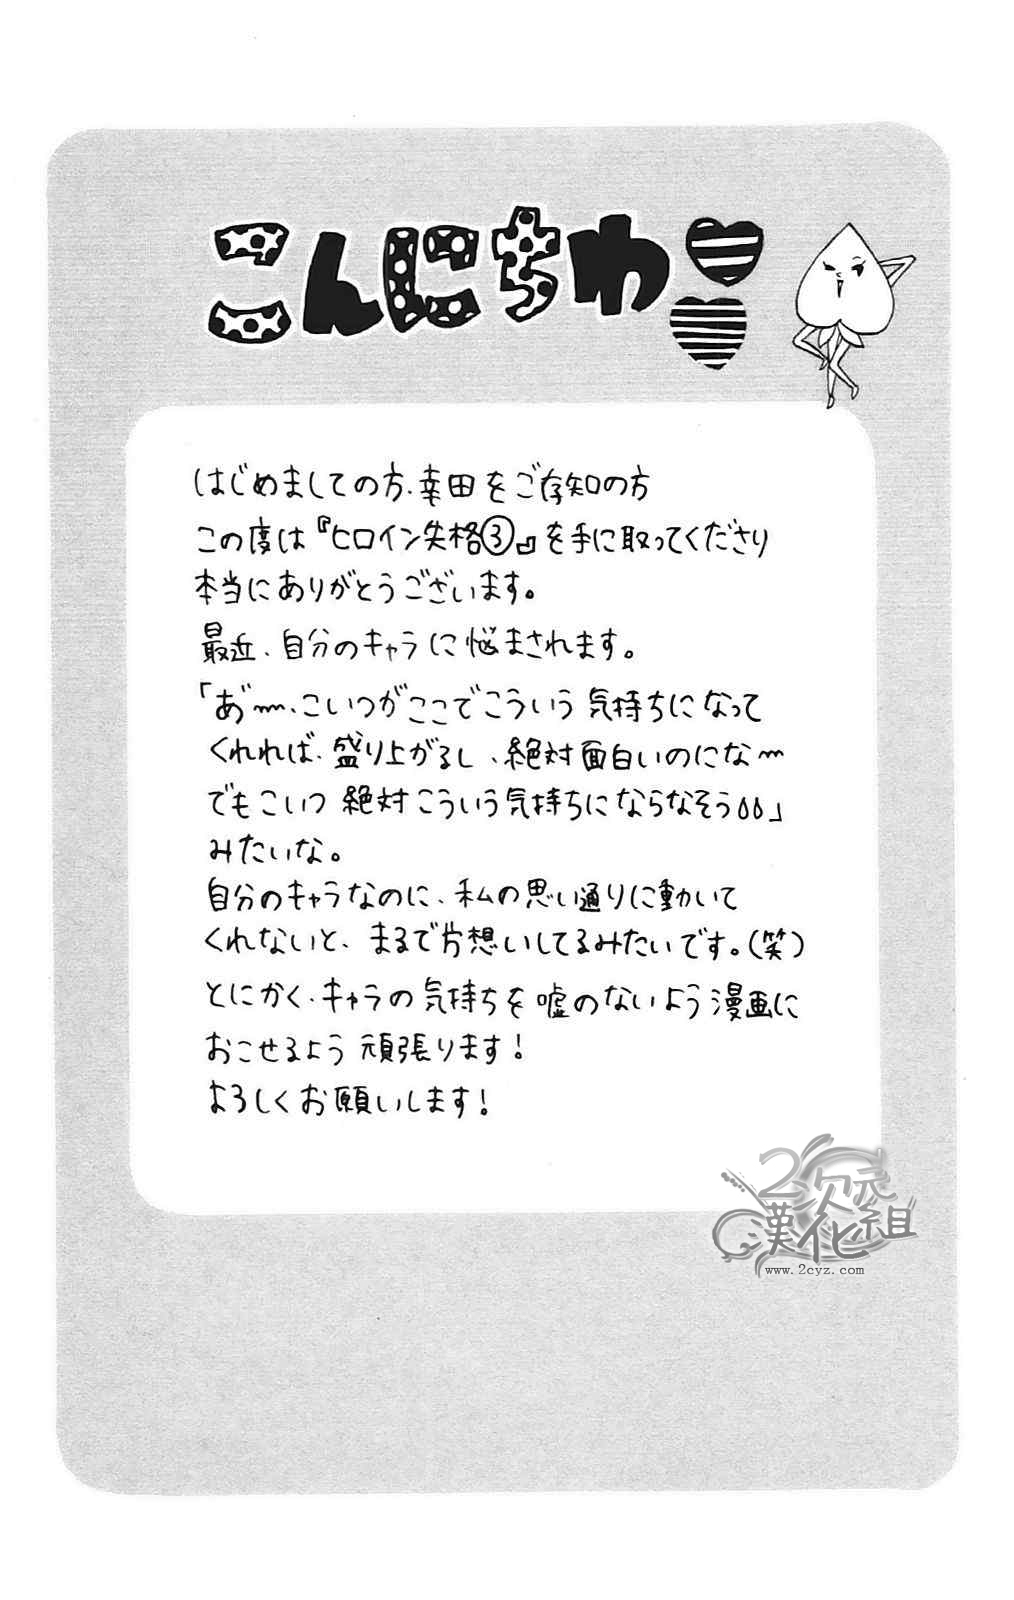 こんにちわ
はじめましての方、幸田をご存知の方
この度は『ヒロイン失格③』を手に取ってくださり
本当にありがとうございます。
最近、自分のキャラに悩まされます。
「あ゛〜、こいつがここでこういう気持ちになって
くれれば、盛り上がるし、絶対面白いのにな〜
でもこいつ絶対こういう気持ちにならなそう」
みたいな。
自分のキャラなのに、私の思い通りに動いて
くれないと、まるで片想いしてるみたいです。(笑)
とにかく、キャラの気持ちを嘘のないよう漫画に
おこせるよう頑張ります!
よろしくお願いします!
2次元
漢化組
www.2cyz.com